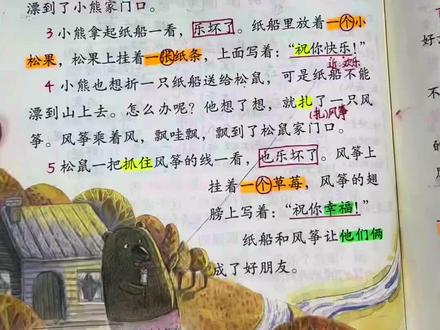 漂到了小熊家门口。
3 小熊拿起纸船一看，乐坏了。纸船里放着一个小
松果，松果上挂着一张纸条，上面写着：“祝你快乐！”
近:欢乐
4 小熊也想折一只纸船送给松鼠，可是纸船不能
漂到山上去。怎么办呢？他想了想，就扎了一只风
(扎)风筝
筝。风筝乘着风，飘哇飘，飘到了松鼠家门口。
5 松鼠一把抓住风筝的线一看，也乐坏了。风筝上
挂着一个草莓，风筝的翅
膀上写着：“祝你幸福！”
纸船和风筝让他们俩
成了好朋友。